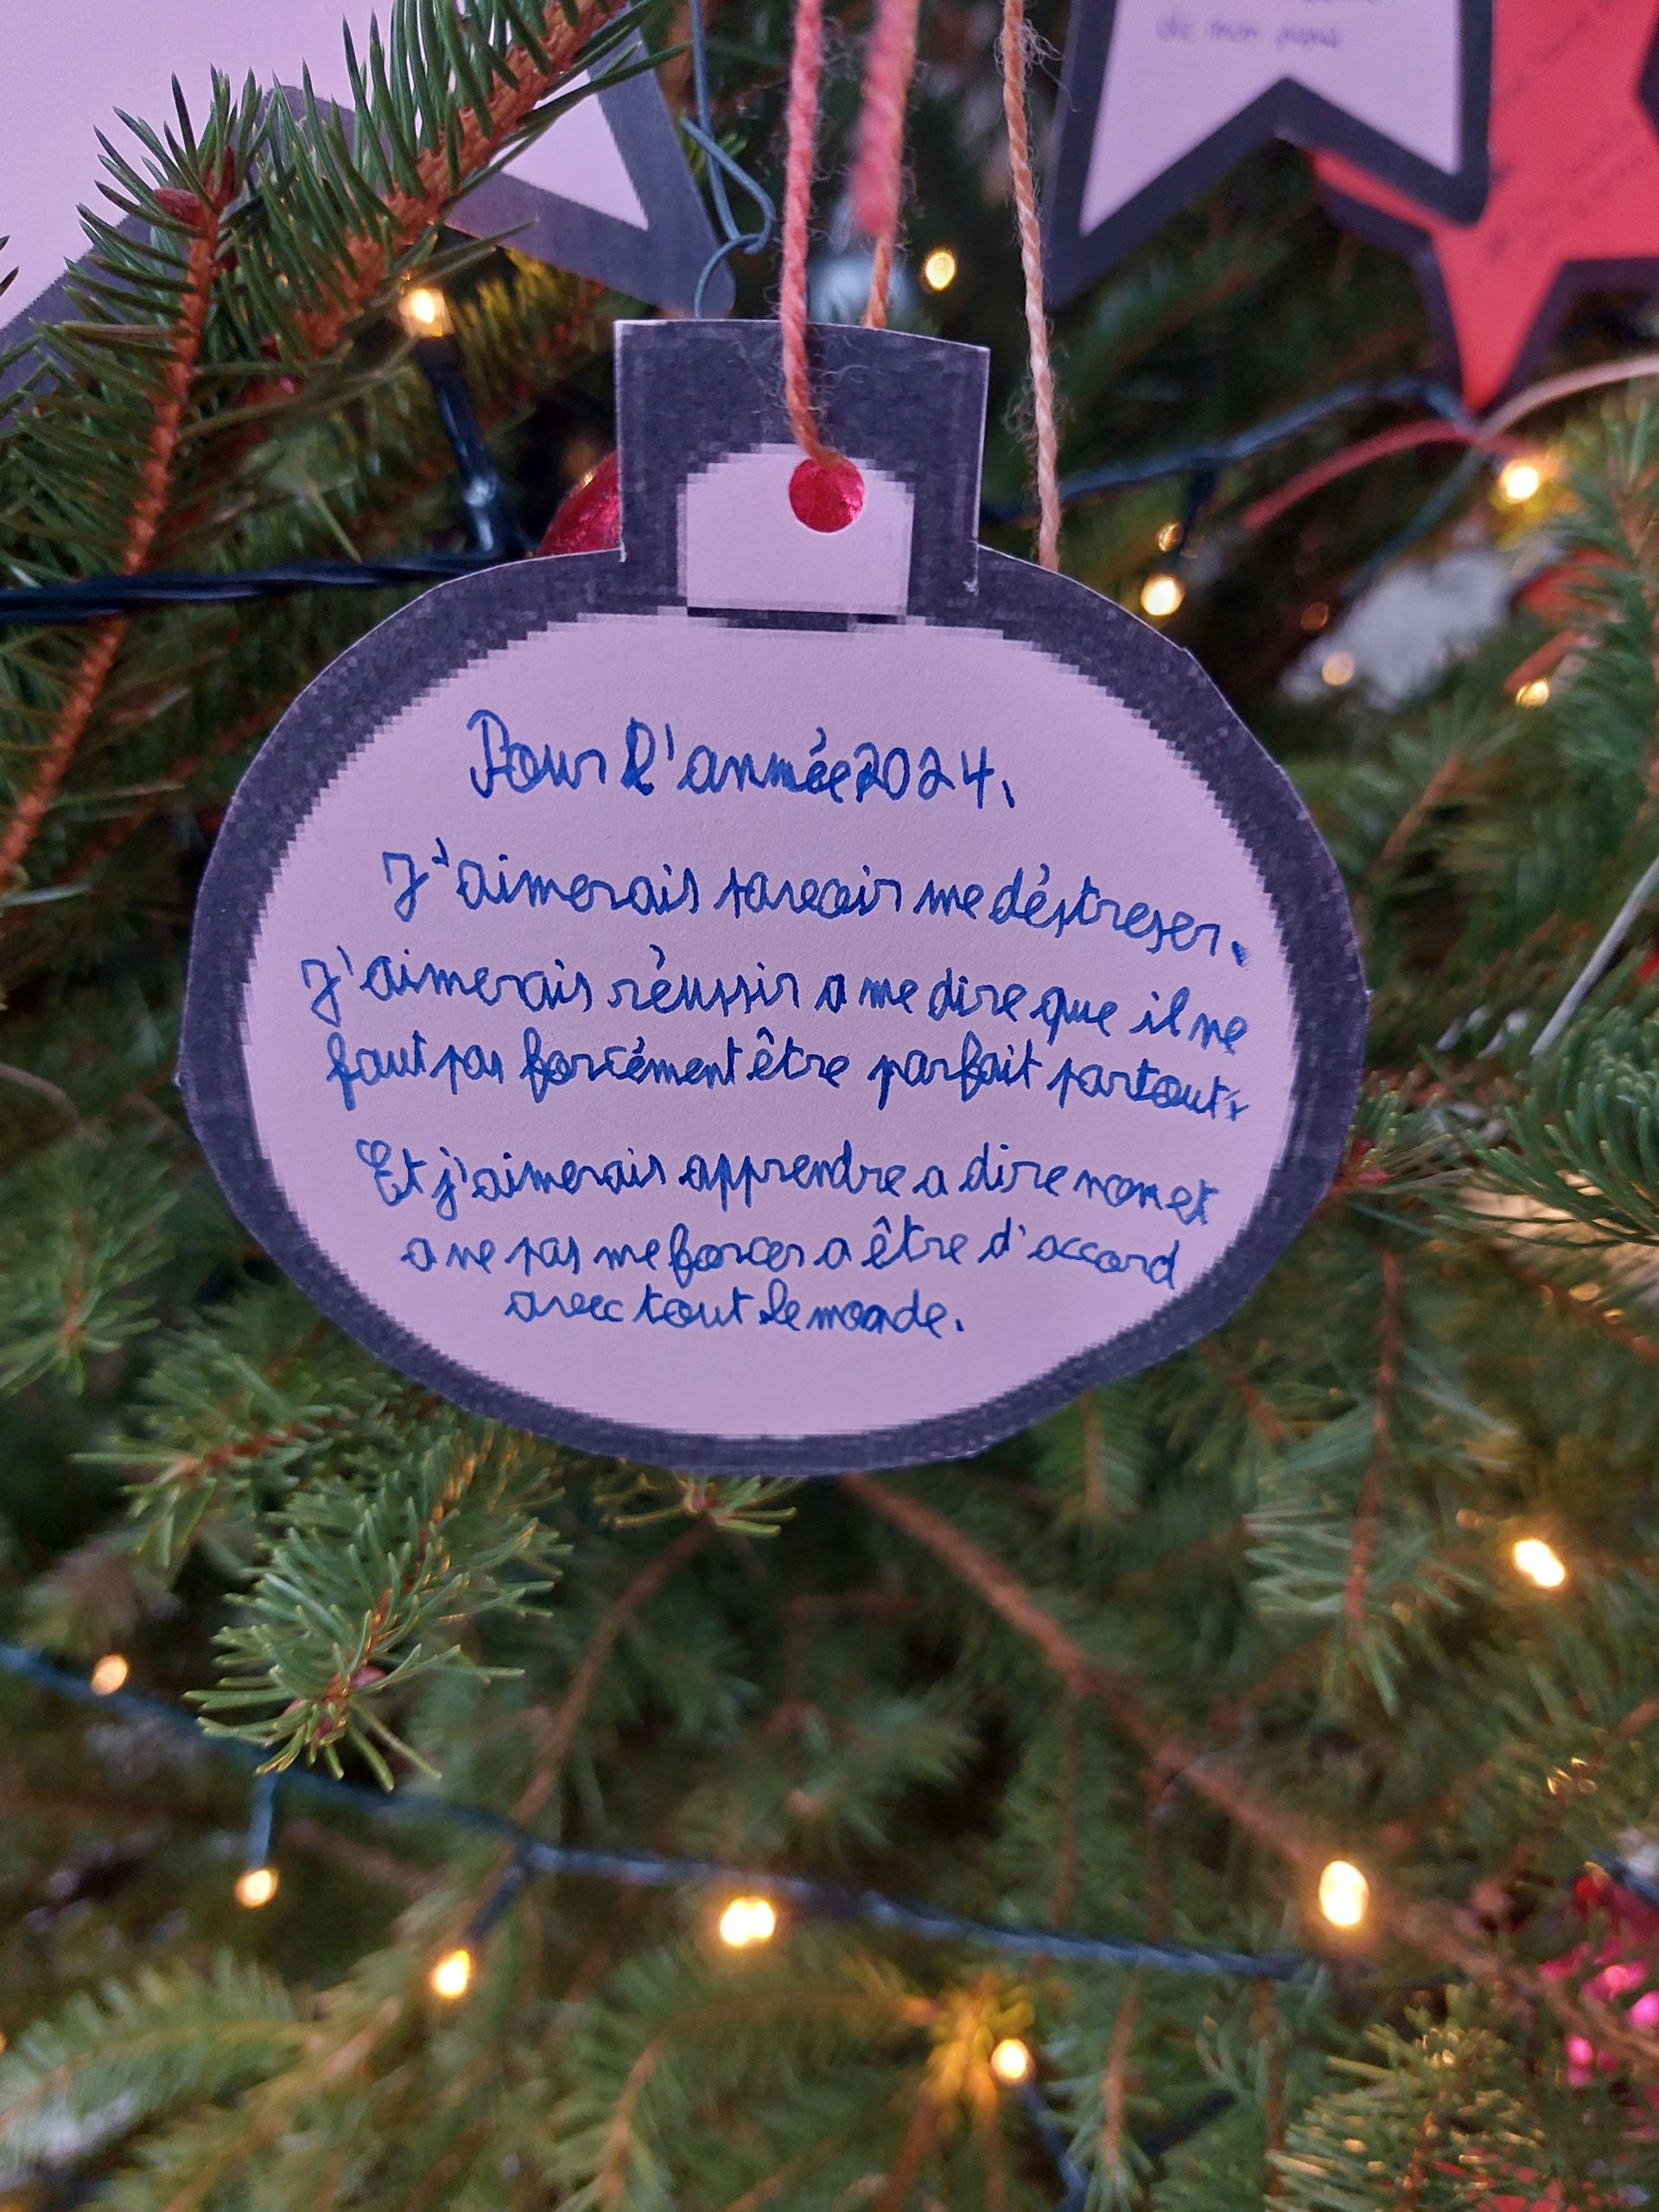 de mon papa
Pour l'année 2024,
J'aimerais savoir me déstreser,
J'aimerais réussir a me dire que il ne
faut pas forcément être parfait partout,
Et j'aimerais apprendre a dire non et
a ne pas me forcer a être d'accord
avec tout le monde.